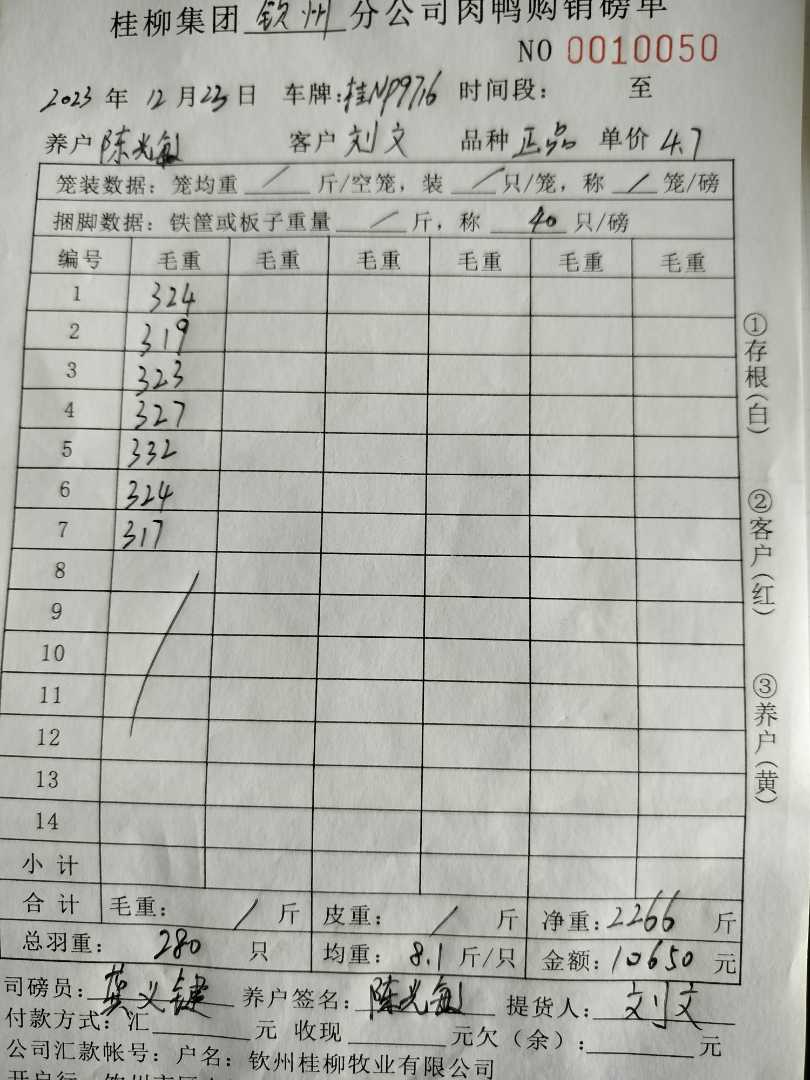 桂柳集团 钦州 分公司肉鸭购销磅单
NO 0010050
2023 年 12 月 23 日 车牌:桂NP9716 时间段: 至
养户 陈光敏 客户 刘文 品种 正品 单价 4.7
笼装数据:笼均重 / 斤/空笼,装 / 只/笼,称 / 笼/磅
捆脚数据:铁筐或板子重量 / 斤,称 40 只/磅
编号 毛重 毛重 毛重 毛重 毛重 毛重
1 324
2 319
3 323
4 327
5 332
6 324
7 317
8
9
10
11
12
13
14
小计
合计 毛重: / 斤 皮重: / 斤 净重:2266 斤
总羽重: 280 只 均重: 8.1 斤/只 金额:10650 元
①存根(白)
②客户(红)
③养户(黄)
司磅员:龚义键 养户签名:陈光敏 提货人:刘文
付款方式:汇 元 收现 元欠(余): 元
公司汇款帐号:户名:钦州桂柳牧业有限公司